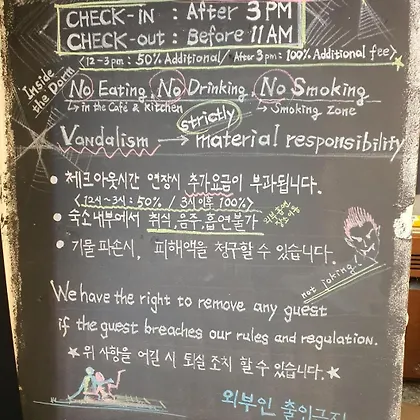 CHECK-in : After 3 PM
CHECK-out : Before 11 AM
<12-3pm : 50% Additional / After 3pm : 100% Additional fee>
Inside the Dorm
No Eating, No Drinking, No Smoking
↳ in the Café & Kitchen
↳ Smoking Zone
strictly
Vandalism → material responsibility
• 체크아웃시간 연장시 추가요금이 부과됩니다.
<12시~3시 : 50% / 3시이후 100%>
• 숙소내부에서 취식, 음주, 흡연불가
외부흡연
• 기물 파손시, 피해액을 청구할 수 있습니다.
not joking!
We have the right to remove any guest
if the guest breaches our rules and regulation.
★ 위 사항을 어길 시 퇴실 조치 할 수 있습니다. ★
외부인 출입금지